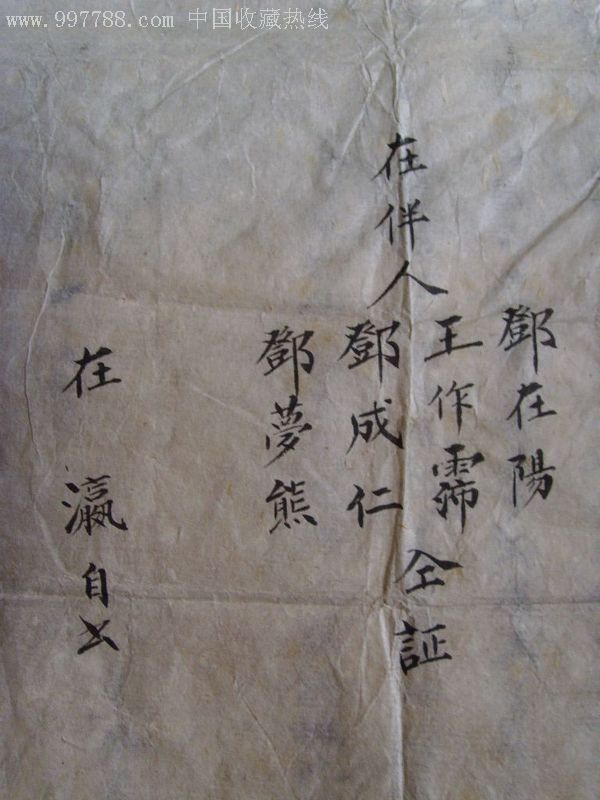 www.997788.com 中国收藏热线
在伴人
鄧在陽
王作
鄧成仁
鄧夢熊
仝証
在瀛自书